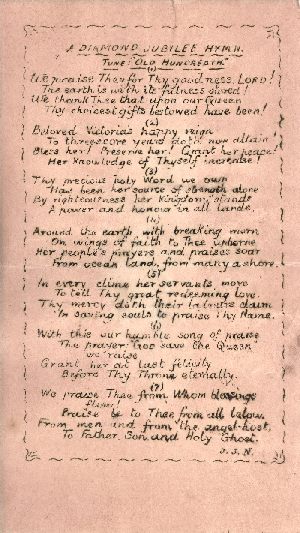 A DIAMOND JUBILEE HYMN.
TUNE "OLD HUNDREDTH"
(1)
We praise Thee for Thy goodness, LORD!
The earth is with its fulness stored!
We thank Thee that upon our Queen
Thy choicest gifts bestowed have been!
(2)
Beloved Victoria's happy reign
To threescore years doth now attain
Bless her! Preserve her! Grant her peace!
Her knowledge of Thyself increase!
(3)
Thy precious holy Word we own
Has been her source of strength alone
By righteousness her Kingdom stands
A power and honour in all lands.
(4)
Around the earth with breaking morn
On wings of faith to Thee upborne
Her people's prayers and praises soar
From ocean, land, from many a shore.
(5)
In every clime her servants move
To tell Thy great redeeming love.
Thy mercy doth their labours claim
In saving souls to praise Thy Name.
(6)
With this our humble song of praise
The prayer "God save the Queen"
we raise
Grant her at last felicity
Before Thy Throne eternally.
(7)
We praise Thee from Whom blessings
flow!
Praise be to Thee from all below.
From men and from the angel-host,
To Father, Son, and Holy Ghost.
J. S. N.